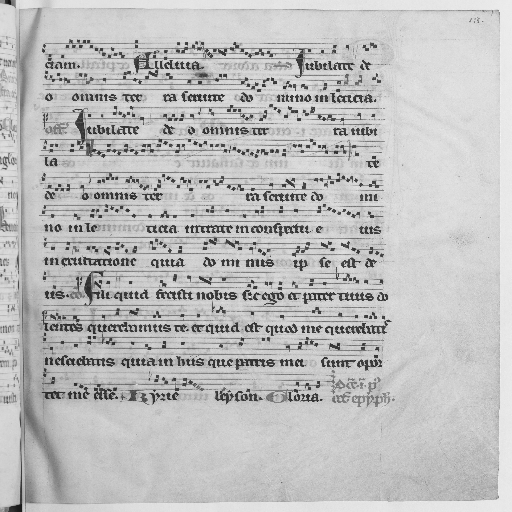 ciam. Alleluia. Iubilate de
o omnis ter ra seruite do mino in leticia.
off. Iubilate de o omnis ter ra iubi
la te
de o omnis ter ra seruite do mi
no in le ticia intrate in conspectu e ius
in exultatione quia do mi nus ip se est de
us. co. Fili quid fecisti nobis sic ego et pater tuus do
lentes querebamus te et quid est quod me querebatis
nesciebatis quia in hiis que patris mei sunt opor
tet me esse. Kyrie leyson. Gloria.